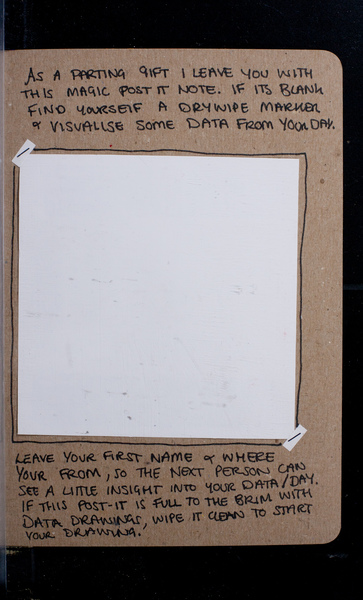 AS A PARTING GIFT I LEAVE YOU WITH
THIS MAGIC POST IT NOTE. IF ITS BLANK
FIND YOURSELF A DRYWIPE MARKER
& VISUALISE SOME DATA FROM YOUR DAY.
LEAVE YOUR FIRST NAME & WHERE
YOUR FROM, SO THE NEXT PERSON CAN
SEE A LITTLE INSIGHT INTO YOUR DATA/DAY.
IF THIS POST-IT IS FULL TO THE BRIM WITH
DATA DRAWINGS, WIPE IT CLEAN TO START
YOUR DRAWING.